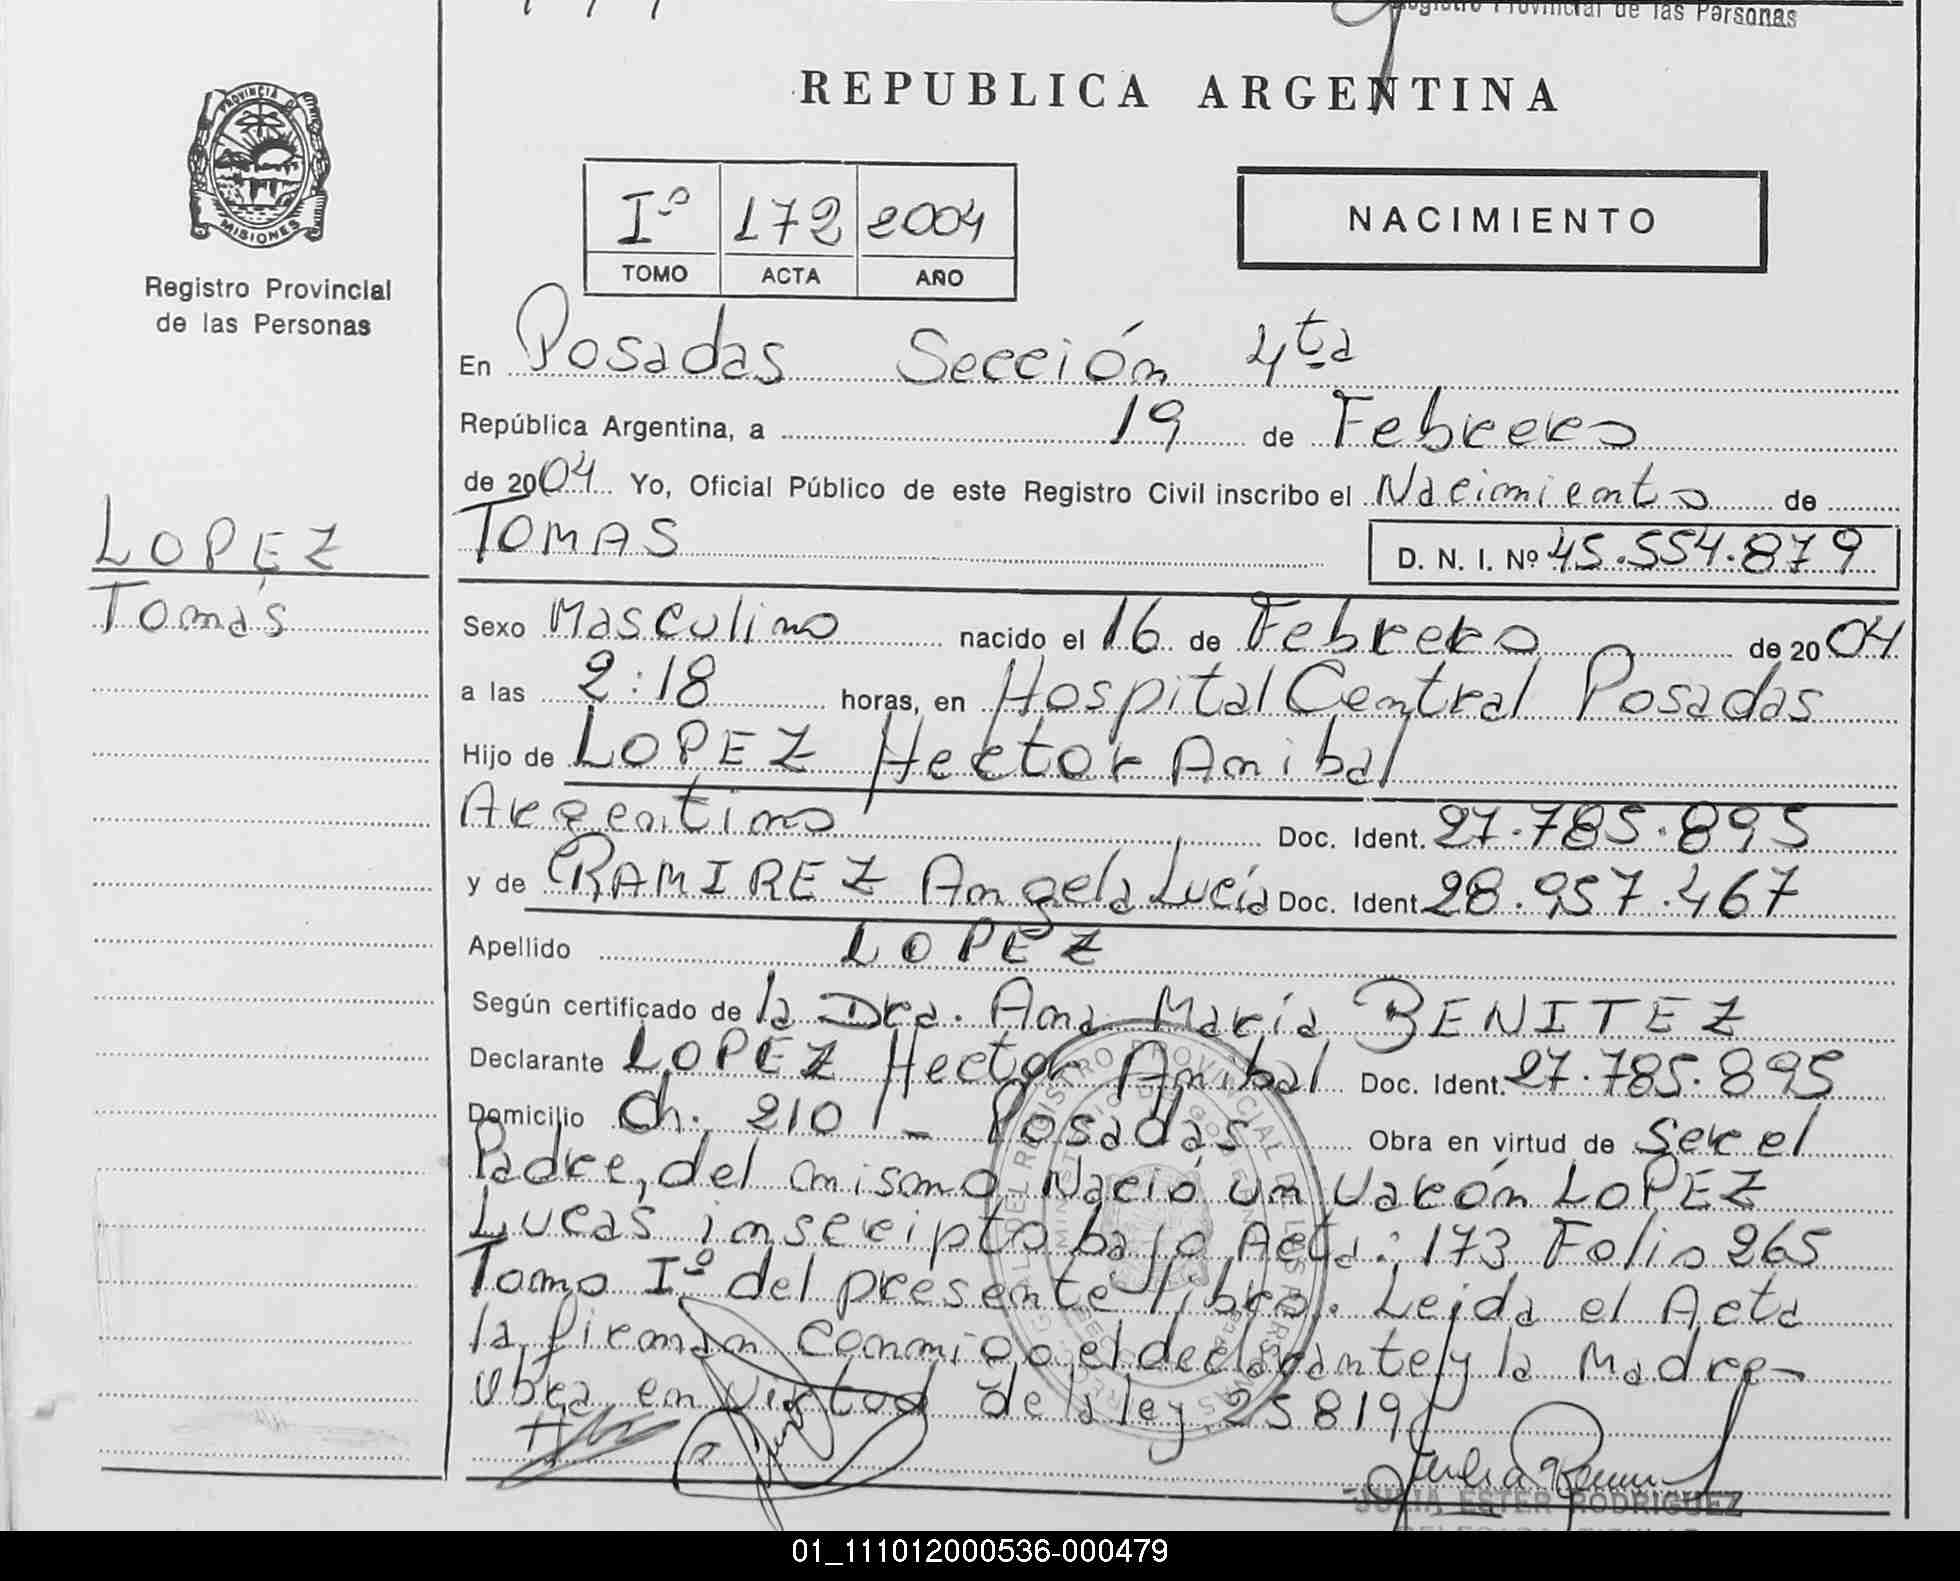 Registro Provincial de las Personas
REPUBLICA ARGENTINA
PROVINCIA DE
MISIONES
Registro Provincial
de las Personas
Iº 172 2004
TOMO ACTA AÑO
NACIMIENTO
En Posadas Sección 4ta
República Argentina, a 19 de Febrero
de 2004 Yo, Oficial Público de este Registro Civil inscribo el Nacimiento de
LOPEZ
Tomás
TOMAS D. N. I. Nº 45.554.879
Sexo Masculino nacido el 16 de Febrero de 2004
a las 2:18 horas, en Hospital Central Posadas
Hijo de LOPEZ Hector Anibal
Argentino Doc. Ident. 27.785.895
y de RAMIREZ Angela Lucía Doc. Ident. 28.957.467
Apellido LOPEZ
Según certificado de la Dra. Ana María BENITEZ
Declarante LOPEZ Hector Anibal Doc. Ident. 27.785.895
Domicilio Ch. 210 - Posadas Obra en virtud de Ser el
Padre, del mismo Nació un Varón LOPEZ
Lucas inscripto bajo Acta: 173 Folio 265
Tomo Iº del presente libro. Leida el Acta
la firman conmigo el declarante y la Madre-
Obra en virtud de la ley 25819
JULIA ESTER RODRIGUEZ
01_111012000536-000479